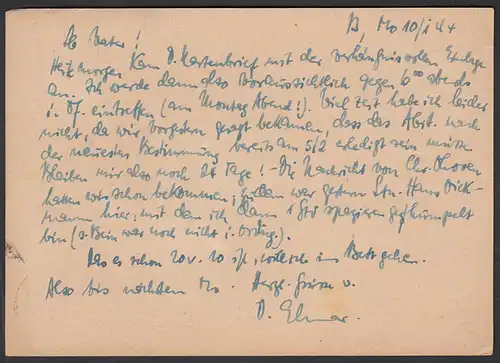 B, Mo 10/I 44
Lb Vater!
Heute morgen kam D. Kartenbrief mit der verhängnisvollen Einlage
an. Ich werde dann also voraussichtlich gegen 6⁰⁰ abends
i. Df. eintreffen (am Montag Abend!). Viel Zeit habe ich leider
nicht, da wir vorgestern gesagt bekamen, dass das Abit. nach
der neuesten Bestimmung bereits am 5/2 erledigt sein müsse.
Bleiben mir also noch 24 Tage! - Die Nachricht von Chr. Thossen
hatten wir schon bekommen, zudem war gestern Ltn. Hans Dick-
mann hier, mit dem ich dann 1 Std spazieren gehumpelt
bin (s. Bein war noch nicht i. Ordng.).
Da es schon 20 v. 10 ist, will ich ins Bett gehen.
Also bis nächsten Mo. Herzl. Grüsse v.
D. Elmar.